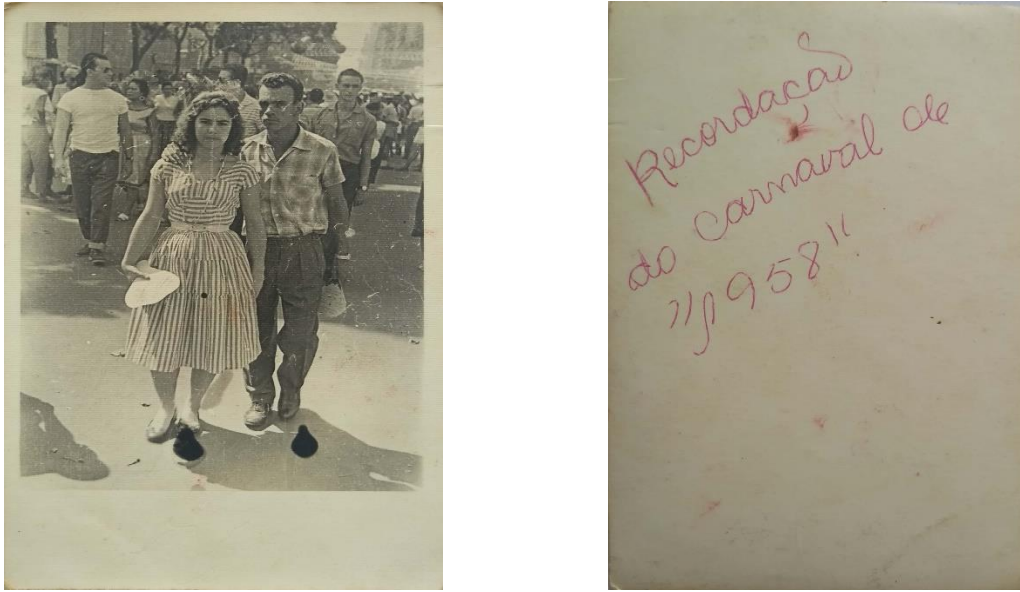 Recordação
do carnaval de
"1958"